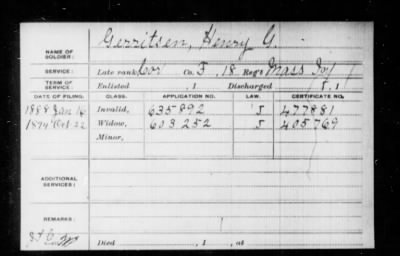 Gerritsen, Henry G.
NAME OF SOLDIER:
SERVICE: Late rank Cor Co. F, 18 Reg't Mass Inf
TERM OF SERVICE: Enlisted , 1 Discharged , 1
DATE OF FILING. CLASS. APPLICATION NO. LAW. CERTIFICATE NO.
1888 Jan Invalid, 635892 J 477881
1894 Oct 22 Widow, 603252 J 405769
Minor,
ADDITIONAL SERVICES:
REMARKS:
Died , 1 , at